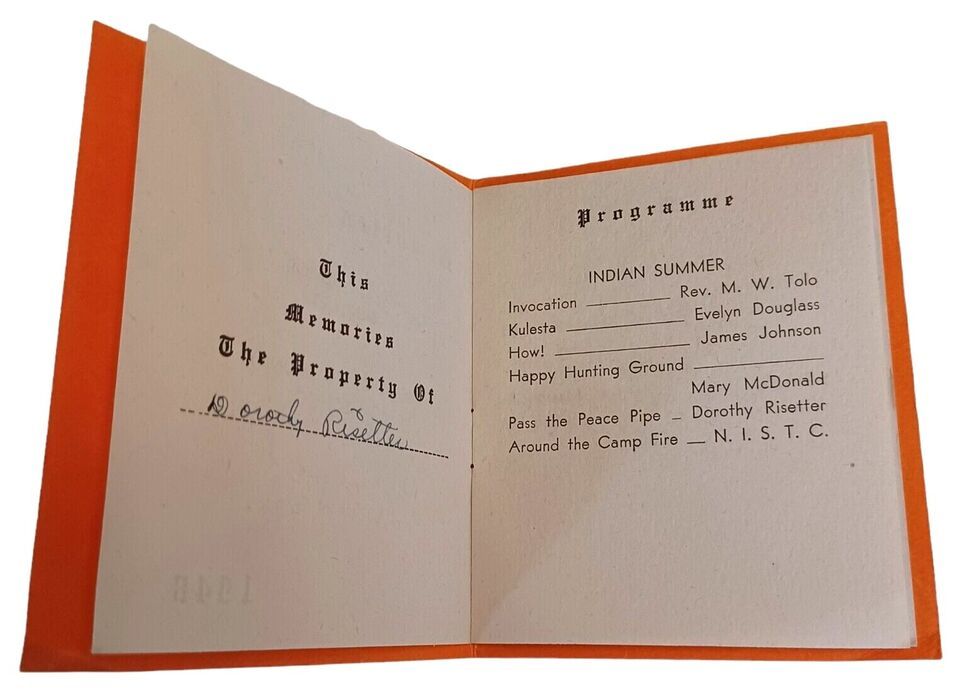 This
Memories
The Property Of
Dorothy Risetter
Programme
INDIAN SUMMER
Invocation Rev. M. W. Tolo
Kulesta Evelyn Douglass
How! James Johnson
Happy Hunting Ground
Mary McDonald
Pass the Peace Pipe Dorothy Risetter
Around the Camp Fire N. I. S. T. C.